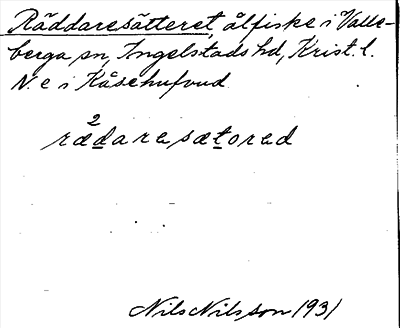 Räddaresätteret, ålfiske i Valle-
berga sn, Ingelstads hd, Krist. l.
N. e i Kåsehufvud
2
rædaresætored
Nils Nilsson 1931